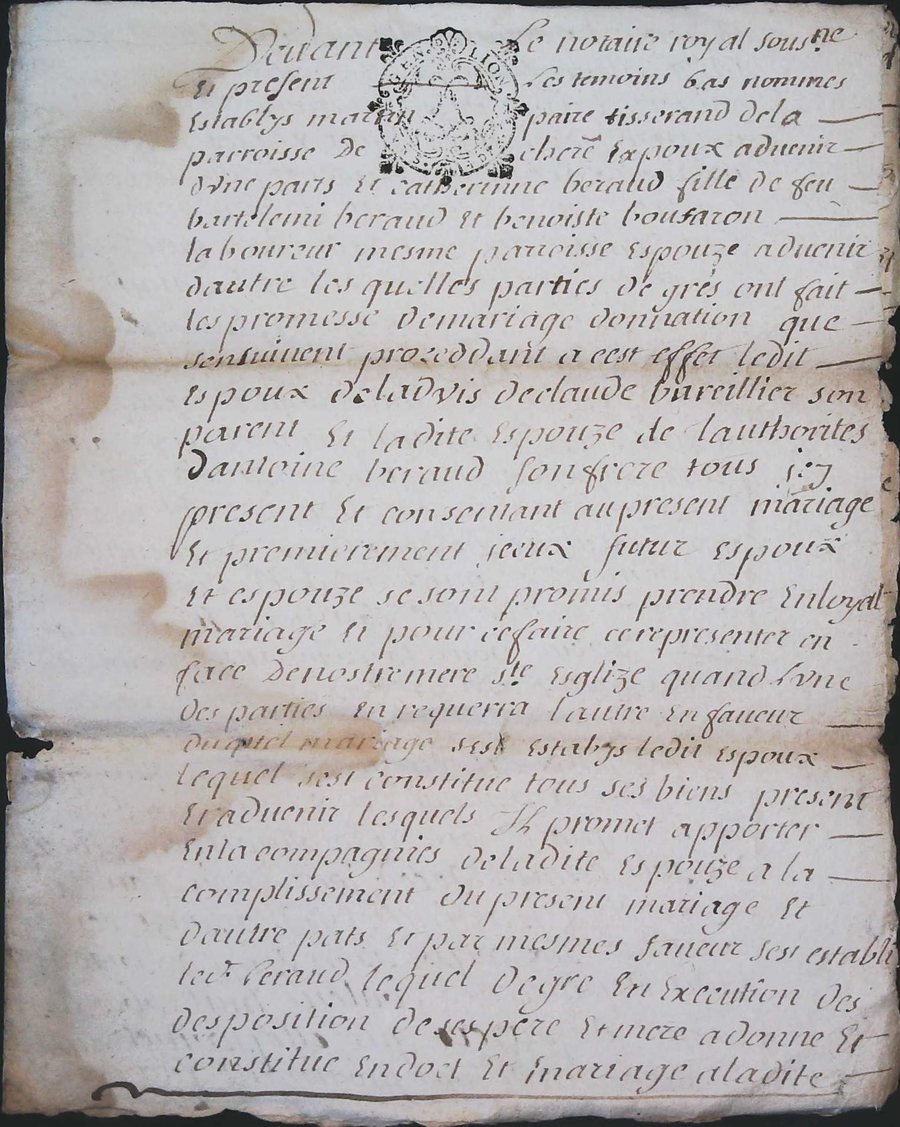 Devant Le notaire royal sous.ne
Et present Les temoins bas nommes
Establys martin paire tisserand dela
parroisse De chere Expoux advenir
dvne parts Et catherinne beraud fille de feu
bartelemi beraud Et benoiste boufaron
laboureur mesme parroisse Espouze advenir
dautre les quelles parties De gres ont fait
les promesse Demariage donnation que
sensuivent prozeddant a cest effet ledit
Espoux deladvis declaude bureillier son
parent Et ladite Espouze de lauthorites
Dantoine beraud son frere tous icy
present Et consentant aupresent mariage
Et premierement jceux futur Espoux
Et espouze se sont promis prendre Enloyal
mariage Et pour cefaire ce representer en
face Denostremere ste Esglize quand Lvne
Des parties En requerra lautre En faveur
duquel mariage sest Establys ledit Espoux
lequel sest constitue tous ses biens present
Et advenir lesquels Il promet apporter
Enla compagnies deladite Espouze a la
complissement du present mariage Et
dautre pats Et par mesmes faveur sest establi
led.t beraud lequel Degre En Execution des
desposition de ses pere Et mere a donne Et
constitue Endot Et mariage aladite